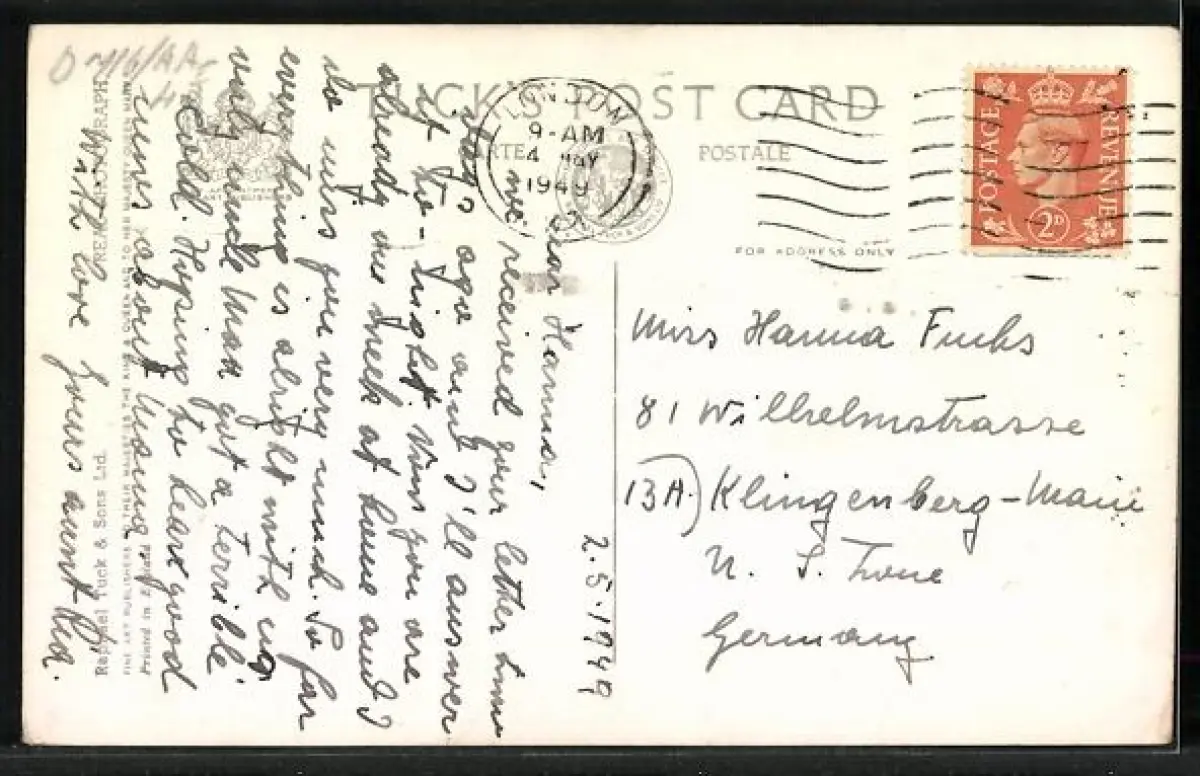 TUCK'S POST CARD
CARTE POSTALE
FOR ADDRESS ONLY
LONDON
9-AM
4 MAY
1949
POSTAGE REVENUE
2D
2.5.1949
Dear Hanna,
we received your letter
days ago and I'll answer
it to-night. You are
already one week at home and I
do miss you very much. So far
everything is alright with us
only uncle Max got a terrible
cold. Hoping to hear good
news about Mama
With love yours aunt
Miss Hanna Fuchs
81 Wilhelmstrasse
13A) Klingenberg-Main
U. S. Zone
Germany
Raphael Tuck & Sons Ltd.
FINE ART PUBLISHERS TO THEIR MAJESTIES THE KING & QUEEN AND TO HER MAJESTY QUEEN MARY
Printed in England
REAL PHOTOGRAPH